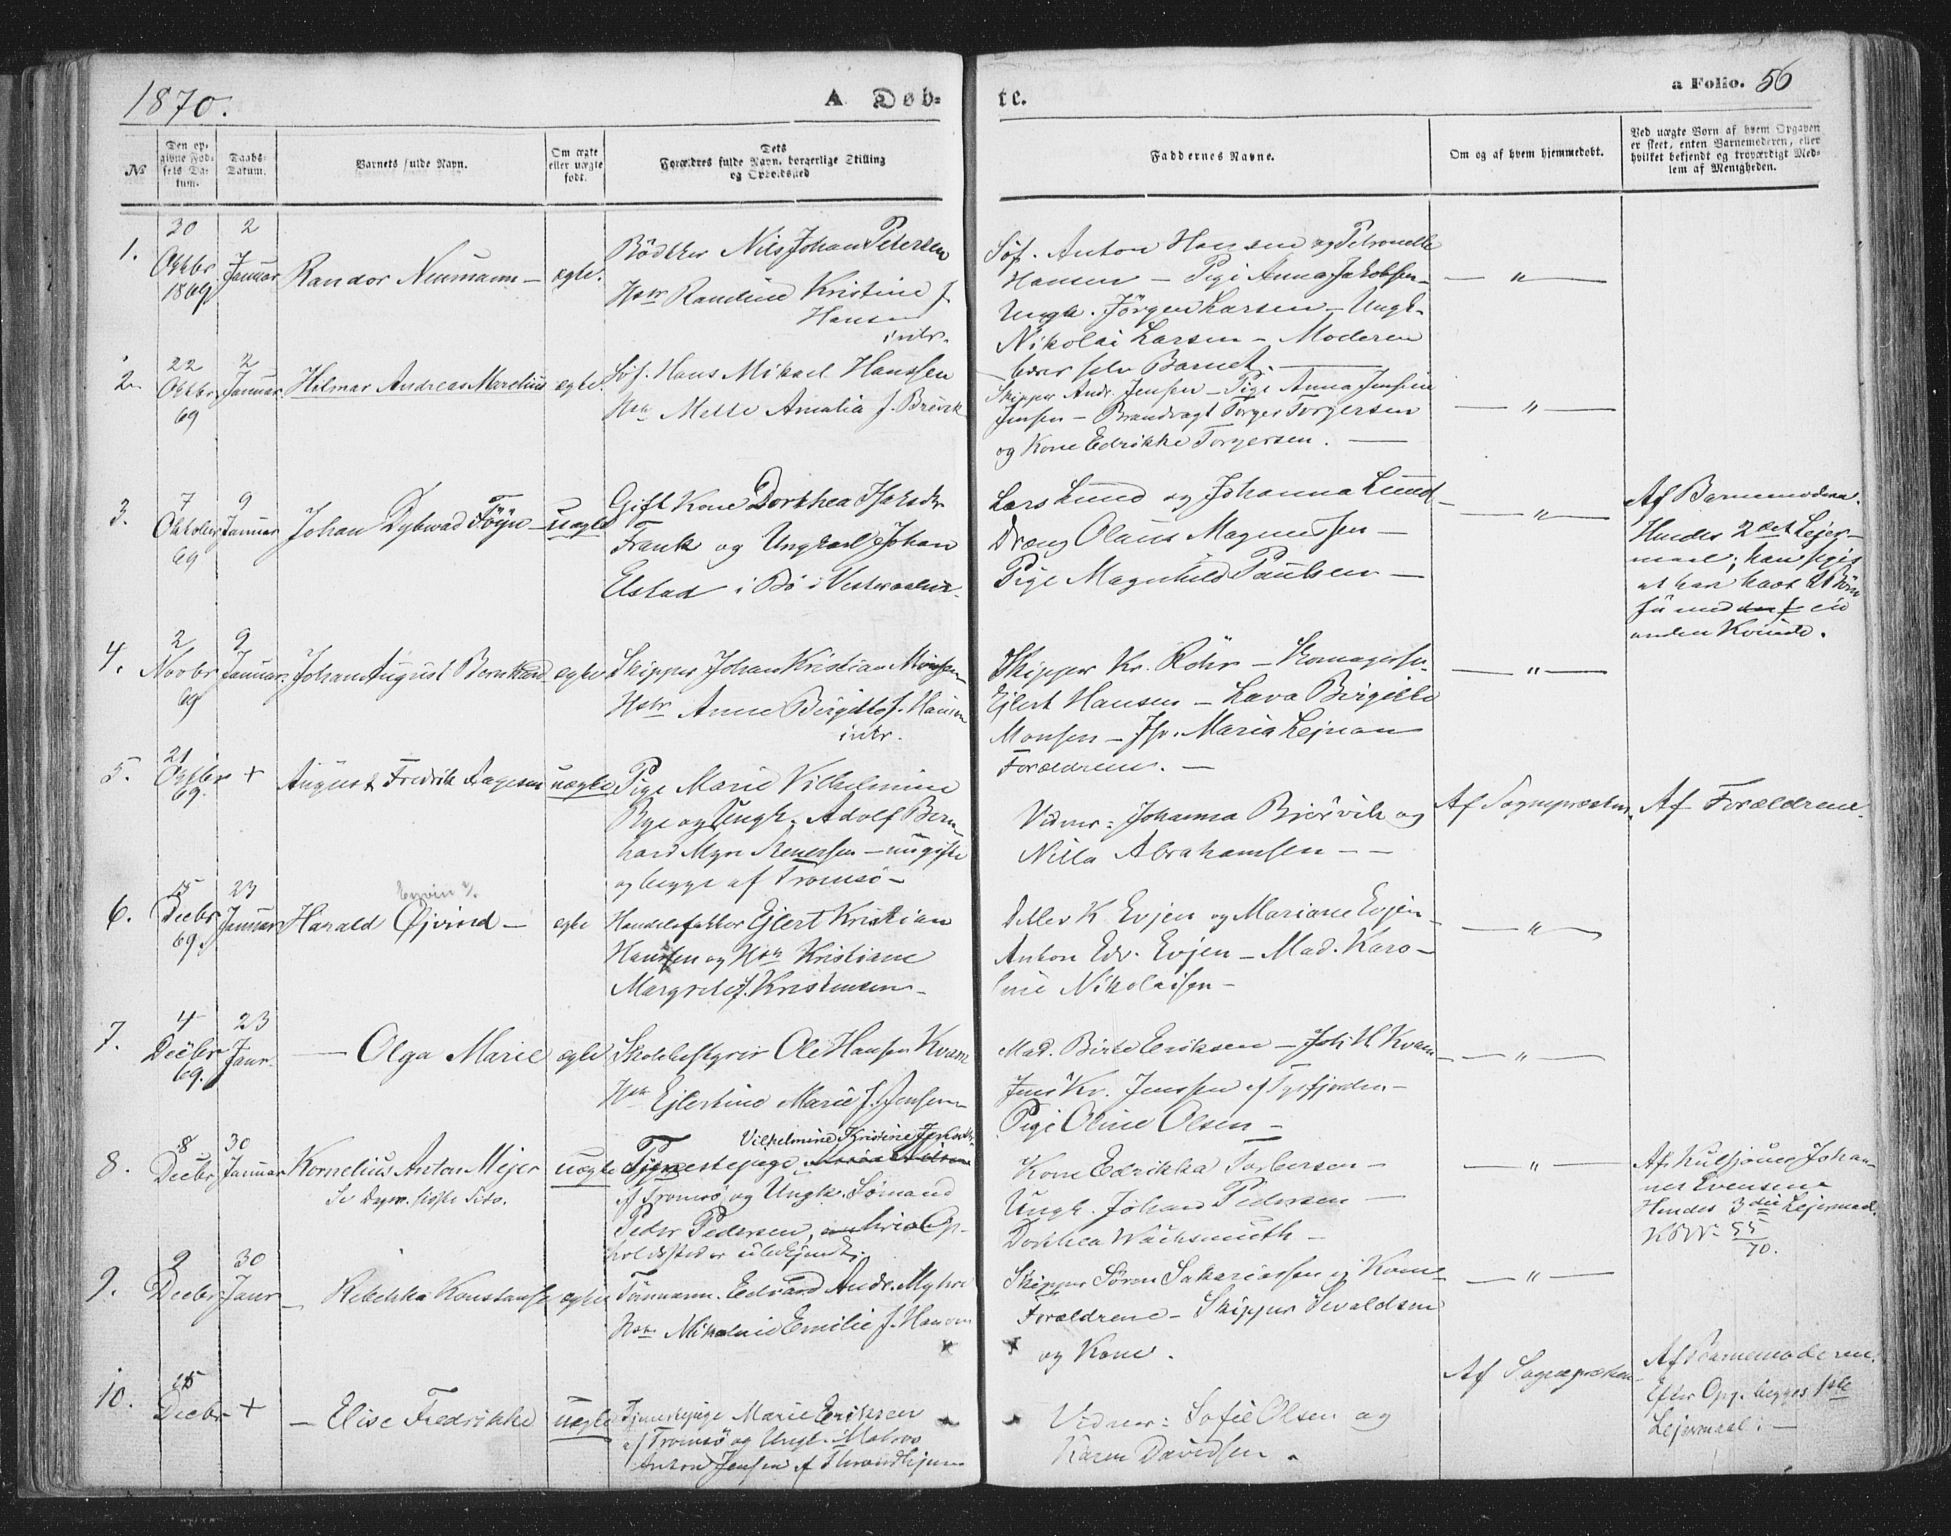 1870.
A Døb-
te.
a Folio. 56
No
Den op-
givne Fød-
sels Da-
tum.
Daabs-
Datum.
Barnets fulde Navn.
Om ægte
eller uægte
født.
Dets
Forældres fulde Navn, borgerlige Stilling
og Opholdssted
Faddernes Navne.
Om og af hvem hjemmedøbt.
Ved uægte Børn af hvem Opgaven
er skeet, enten Barnemoderen, eller
hvilket bekjendt og troværdigt Med-
lem af Menigheden.
1.
30
Oktbr
1869
2
Januar
Randor Neumann —
ægte.
Bödker Nils Johan Petersen
Hstr Randine Kristine f.
Hansen
intr.
Anton Hansen og Petronelle
Hansen — Pige Anna Jakobsen —
Ungk. Jörgen Larsen — Ungk.
Nikolai Larsen — Moderen
bær selv Barnet. —
— " —
2.
22
Oktbr
69
2
Januar
Hilmar Andreas Marelius
ægte.
Hans Mikael Hanssen
Hstr Mette Amalia f. Brevik
Skipper Andr. Jensen — Pige Anna Jensine
Jensen — Brandvagt Torger Torgersen
og Kone Edrikke Torgersen. —
— " —
3.
7
Oktober
69
9
Januar
Johan Dybwad Föyn —
uægte
Gift Kone Dorthea
Frank og Ungkarl Johan
Elstad i Bö i Vesteraalen.
Lars Lund og Johanna Lund —
Dreng Olaus Magnussen —
Pige Magnhild Paulsen —
— " —
Af Barnemoderen.
Hendes 2det Lejer-
maal; han siges
at have havt
en
anden Kvinde.
4.
2
Novbr
69
9
Januar.
Johan August Bernhard
ægte
Skipper Johan Kristian Monsen
Hstr Anne Birgitte f. Hansen
intr.
Skipper Kr. Röhr —
Ejlert Hansen — Lava Birgitte
Monsen — Jfr. Maria Lejnan
Forældrene. —
— " —
5.
21
Oktbr
69.
+
August Fredrik Agesen
uægte
Pige Marie Vilhelmine
Bye og Ungk. Adolf Bern-
hard Myre — ugifte
og begge af Tromsö —
Vidner: Johanna Björvik og
Nilla Abrahamsen — —
Af Sognepræsten.
Af Forældrene.
6.
15
Decbr
69.
23
Januar
Eyvin
Harald Øjvind —
ægte
Handelsfuldm Ejlert Kristian
Hanssen og Hstr Kristiane
Margrete f. Kristensen —
Detlev K. Evjen og Mariane Evjen —
Anton Edv. Evjen — Mad. Karo-
line Nikolaisen —
— " —
7.
4
Decbr
69.
23
Janr.
— Olga Marie
ægte
Skolebestyrer Ole Hansen Kvam
Hstr Ejlertine Marie f. Jensen
Mad. Birte Eriksen — Joh. H. Kvam —
Jens Kr. Jenssen af Tysfjorden —
Pige Oline Olsen —
— " —
8.
8
Decbr
30
Januar
Kornelius Anton Mejer
Se Dagreg. sidste Side.
uægte
Vilhelmine Kristine
Tjenestepige
af Tromsö og Ungk. Sömand
Peder Pedersen, hvis Op-
holdssted er ubekjendt.
Kone Edrikka Torbersen —
Ungk. Johan Pedersen —
Dorthea Wachsmuth —
— " —
Af Johan-
nes Evensen
Hendes 3die Lejermaal.
55
70.
9.
2
Decbr
30
Janr
— Rebekka Konstanse
ægte
Tömmerm. Edvard Andr. Myhre
Hstr Mikaline Emilie f. Hansen
Skipper Sören Sakariassen og Kone —
Forældrene — Skipper Sivaldsen
og Kone.
— " —
10.
15
Decbr
+
— Elise Fredrikke
uægte
Tjenestepige Marie Eriksen
af Tromsö og Ungk. Matros
Anton Jensen af Throndhjem
Vidner: Sofie Olsen og
Karen Davidsen.
Af Sognepræsten
Af Barnemoderen.
Efter Opg. begges 1ste
Lejermaal. —